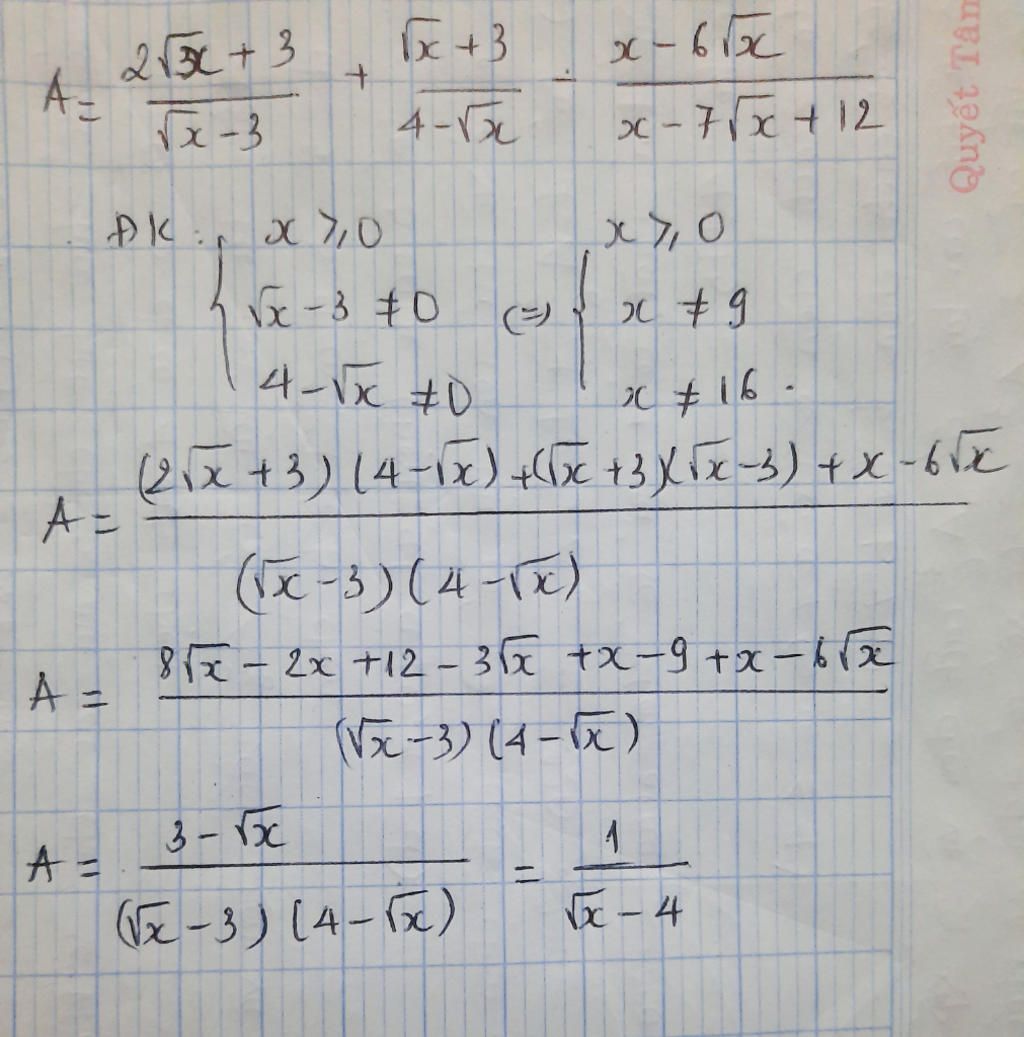 A = \frac{2\sqrt{3x} + 3}{\sqrt{x} - 3} + \frac{\sqrt{x} + 3}{4 - \sqrt{x}} - \frac{x - 6\sqrt{x}}{x - 7\sqrt{x} + 12}
Quyết Tâm
ĐK : \begin{cases} x \geq 0 \\ \sqrt{x} - 3 \neq 0 \\ 4 - \sqrt{x} \neq 0 \end{cases} (=) \begin{cases} x \geq 0 \\ x \neq 9 \\ x \neq 16. \end{cases}
A = \frac{(2\sqrt{x} + 3)(4 - \sqrt{x}) + (\sqrt{x} + 3)(\sqrt{x} - 3) + x - 6\sqrt{x}}{(\sqrt{x} - 3)(4 - \sqrt{x})}
A = \frac{8\sqrt{x} - 2x + 12 - 3\sqrt{x} + x - 9 + x - 6\sqrt{x}}{(\sqrt{x} - 3)(4 - \sqrt{x})}
A = \frac{3 - \sqrt{x}}{(\sqrt{x} - 3)(4 - \sqrt{x})} = \frac{1}{\sqrt{x} - 4}